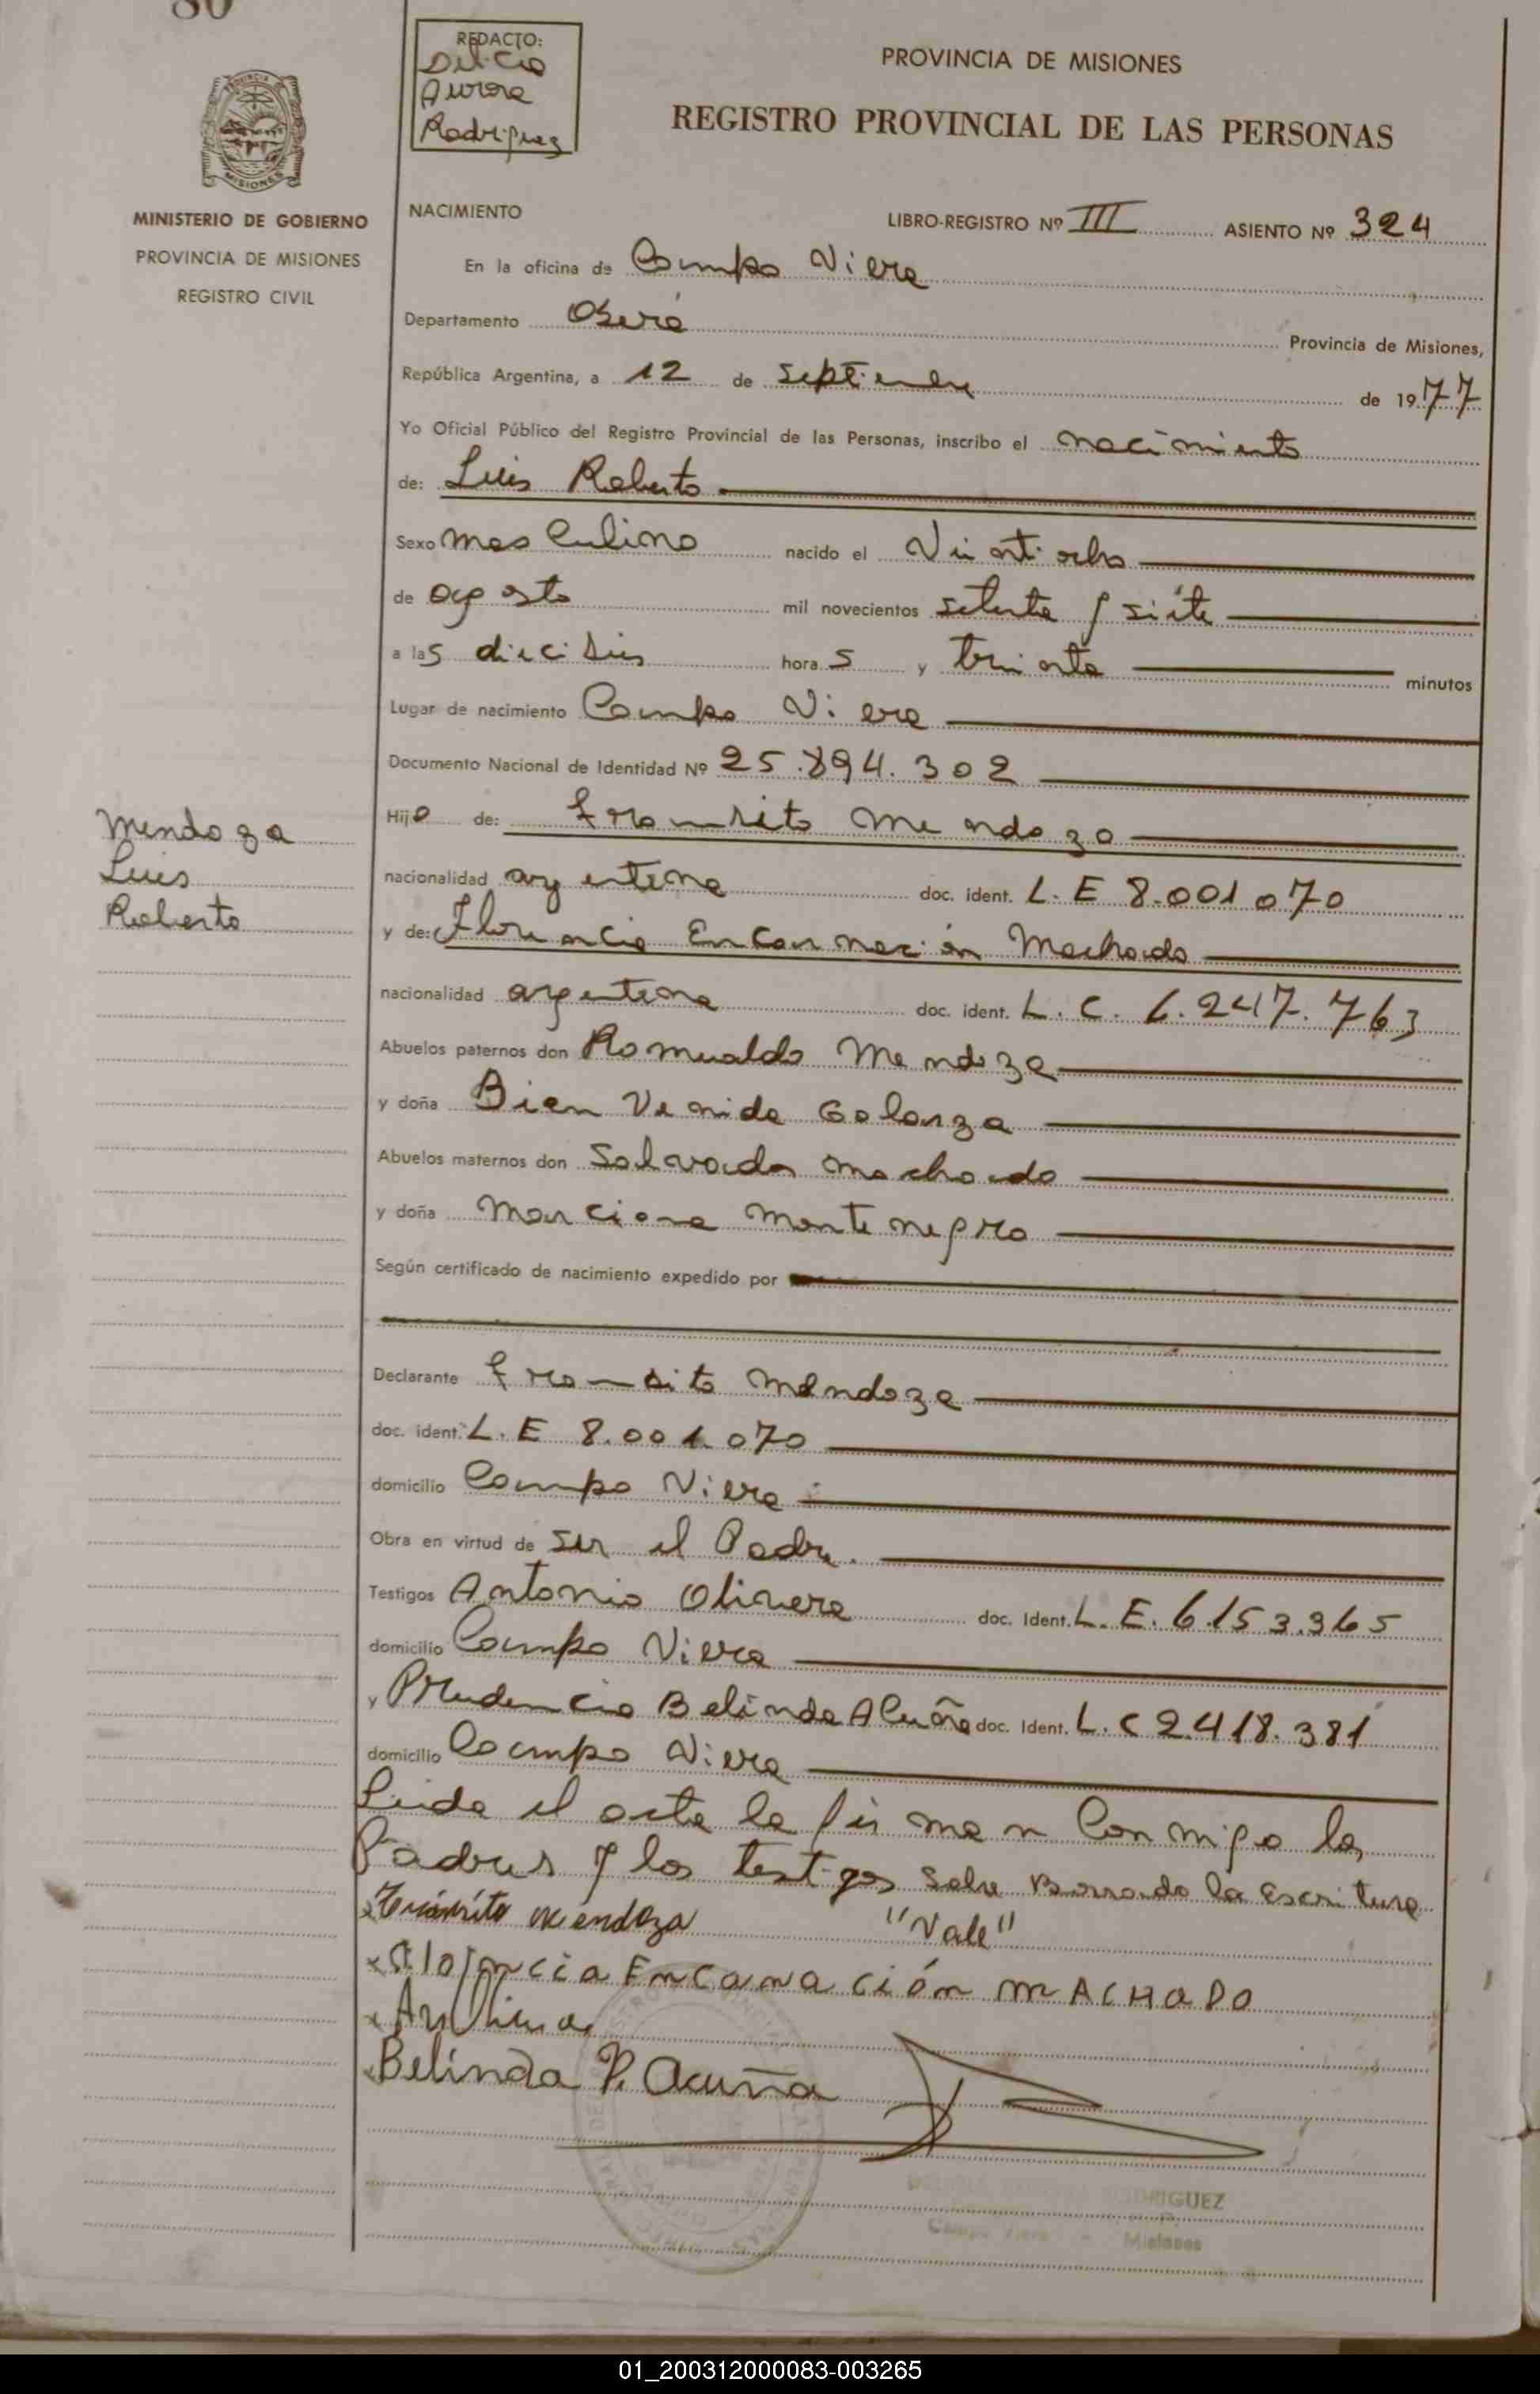 80
REDACTO:
Delicia
Aurora
Rodriguez
PROVINCIA DE MISIONES
REGISTRO PROVINCIAL DE LAS PERSONAS
MINISTERIO DE GOBIERNO
PROVINCIA DE MISIONES
REGISTRO CIVIL
NACIMIENTO LIBRO-REGISTRO Nº III ASIENTO Nº 324
En la oficina de Campo Viera
Departamento Oberá Provincia de Misiones,
República Argentina, a 12 de septiembre de 1977
Yo Oficial Público del Registro Provincial de las Personas, inscribo el nacimiento
de: Luis Roberto
Sexo masculino nacido el Veintiocho
de agosto mil novecientos setenta y siete
a las dieciseis horas y treinta minutos
Lugar de nacimiento Campo Viera
Documento Nacional de Identidad Nº 25.894.302
Mendoza
Luis
Roberto
Hijo de: Transito Mendoza
nacionalidad argentina doc. ident. L. E 8.001 070
y de: Florencia Encarnación Machado
nacionalidad argentina doc. ident. L. C. 6.247.763
Abuelos paternos don Romualdo Mendoza
y doña Bien Venida Galarza
Abuelos maternos don Salvador Machado
y doña Marciana Montenegro
Según certificado de nacimiento expedido por
Declarante Transito Mendoza
doc. ident. L. E 8.001.070
domicilio Campo Viera
Obra en virtud de ser el Padre.
Testigos Antonio Olivera doc. Ident. L. E. 6.153.365
domicilio Campo Viera
y Prudencia Belinda Acuña doc. Ident. L. C 2.418.381
domicilio Campo Viera
Leida el acta la firman conmigo los
Padres y los testigos sobre Borrado la escritura
Tránsito Mendoza "Vale"
x Florencia Encarnación MACHADO
x Belinda P. Acuña
RODRIGUEZ
Campo Viera - Misiones
01_200312000083-003265